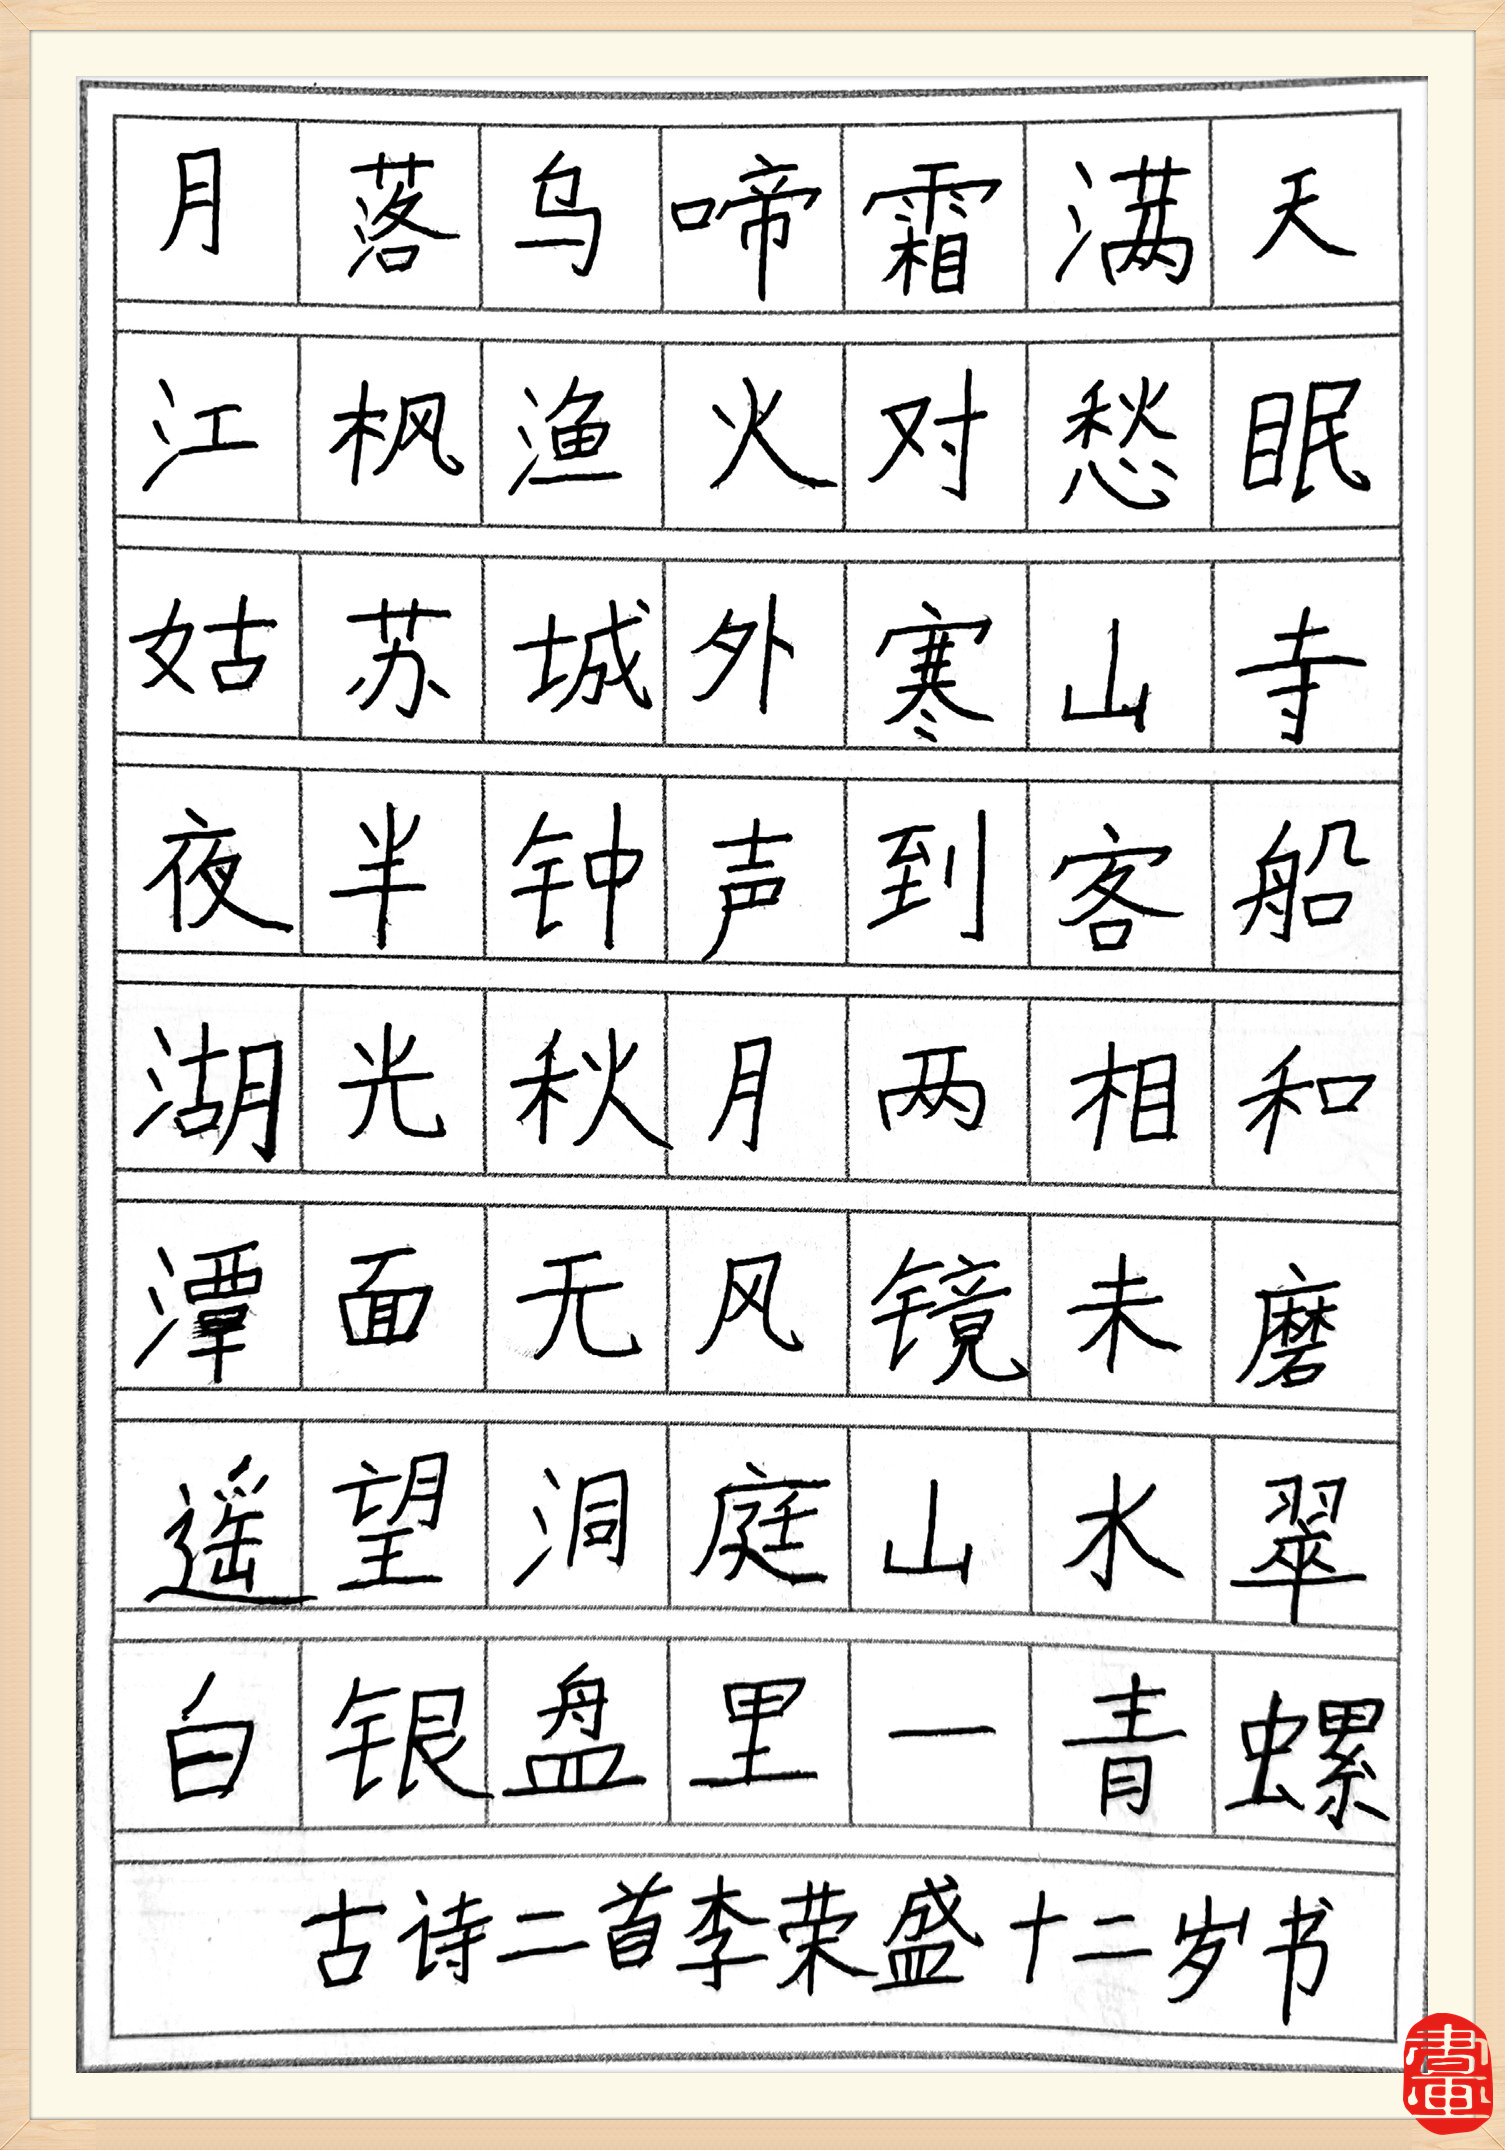 月落乌啼霜满天
江枫渔火对愁眠
姑苏城外寒山寺
夜半钟声到客船
湖光秋月两相和
潭面无风镜未磨
遥望洞庭山水翠
白银盘里一青螺
古诗二首李荣盛十二岁书
書画